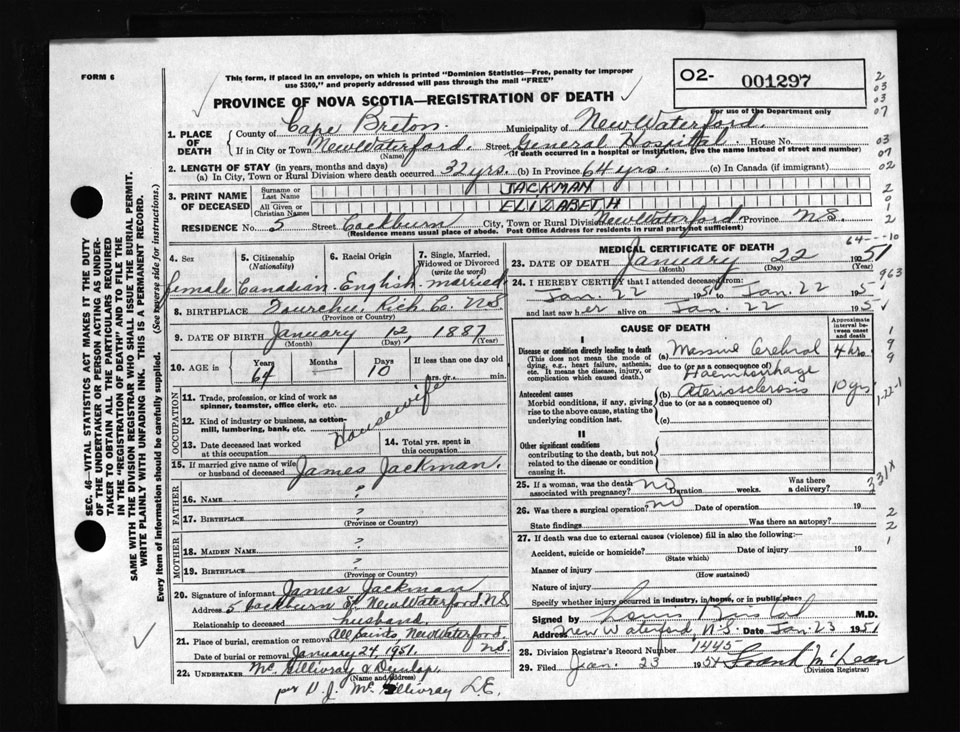 FORM 6
This form, if placed in an envelope, on which is printed "Dominion Statistics—Free, penalty for improper
use $300," and properly addressed will pass through the mail "FREE"
O2- 001297
PROVINCE OF NOVA SCOTIA—REGISTRATION OF DEATH
For use of the Department only
1. PLACE OF DEATH
County of Cape Breton. Municipality of New Waterford.
If in City or Town New Waterford. Street General Hospital. House No.
(Name) (If death occurred in a hospital or institution, give the name instead of street and number)
2. LENGTH OF STAY (in years, months and days)
(a) In City, Town or Rural Division where death occurred 32 yrs. (b) In Province 64 yrs. (c) In Canada (if immigrant)
3. PRINT NAME OF DECEASED
Surname or Last Name JACKMAN
All Given or Christian Names ELIZABETH
RESIDENCE No. 5 Street Cockburn City, Town or Rural Division New Waterford Province N.S.
(Residence means usual place of abode. Post Office Address for residents in rural parts not sufficient)
4. Sex
5. Citizenship (Nationality)
6. Racial Origin
7. Single, Married, Widowed or Divorced (write the word)
female Canadian English married
8. BIRTHPLACE Fourchu, Rich. Co. N.S.
(Province or Country)
9. DATE OF BIRTH January 12, 1887
(Month) (Day) (Year)
10. AGE in Years 64 Months — Days 10 If less than one day old
hrs. or min.
OCCUPATION
11. Trade, profession, or kind of work as
spinner, teamster, office clerk, etc.
12. Kind of industry or business, as cotton-
mill, lumbering, bank, etc.
Housewife
13. Date deceased last worked
at this occupation
14. Total yrs. spent in
this occupation
15. If married give name of wife
or husband of deceased James Jackman.
FATHER
16. NAME ?
17. BIRTHPLACE ?
(Province or Country)
MOTHER
18. MAIDEN NAME ?
19. BIRTHPLACE ?
(Province or Country)
20. Signature of informant James Jackman
Address 5 Cockburn St. New Waterford, N.S.
Relationship to deceased husband.
21. Place of burial, cremation or removal All Saints, New Waterford, N.S.
Date of burial or removal January 24, 1951.
22. UNDERTAKER Mc Gillivray & Dunlap,
(Name and Address)
per D. J. Mc Gillivray L.E.
MEDICAL CERTIFICATE OF DEATH
64---10
23. DATE OF DEATH January 22 1951
(Month) (Day) (Year)
24. I HEREBY CERTIFY that I attended deceased from:
Jan. 22 1951 to Jan. 22 195
and last saw her alive on Jan. 22 195
CAUSE OF DEATH
Approximate interval between onset and death
I
Disease or condition directly leading to death
(This does not mean the mode of
dying, e.g., heart failure, asthenia,
etc. It means the disease, injury, or
complication which caused death.)
(a) Massive Cerebral 4 hrs.
due to (or as a consequence of)
Haemhorrhage
Antecedent causes
Morbid conditions, if any, giving
rise to the above cause, stating the
underlying condition last.
(b) Ateriosclerosis 10 yrs
due to (or as a consequence of)
(c)
II
Other significant conditions
contributing to the death, but not
related to the disease or condition
causing it.
25. If a woman, was the death
associated with pregnancy? No Duration weeks. Was there
a delivery?
26. Was there a surgical operation? no Date of operation 19
State findings Was there an autopsy?
27. If death was due to external causes (violence) fill in also the following:—
Accident, suicide or homicide? Date of injury 19
(State which)
Manner of injury
(How sustained)
Nature of injury
Specify whether injury occurred in industry, in home, or in public place
Signed by M.D.
Address New Waterford, N.S. Date Jan. 23 1951
28. Division Registrar's Record Number 1445
29. Filed Jan. 23 1951 Frank McLean
(Division Registrar)
SEC. 46—VITAL STATISTICS ACT MAKES IT THE DUTY
OF THE UNDERTAKER OR PERSON ACTING AS UNDER-
TAKER TO OBTAIN ALL THE PARTICULARS REQUIRED
IN THE "REGISTRATION OF DEATH" AND TO FILE THE
SAME WITH THE DIVISION REGISTRAR WHO SHALL ISSUE THE BURIAL PERMIT.
WRITE PLAINLY WITH UNFADING INK. THIS IS A PERMANENT RECORD.
Every item of information should be carefully supplied. (See reverse side for instructions.)
2
03
03
07
03
07
02
2
0
1
2
963
1
9
9
1-22-1
331X
2
2
1